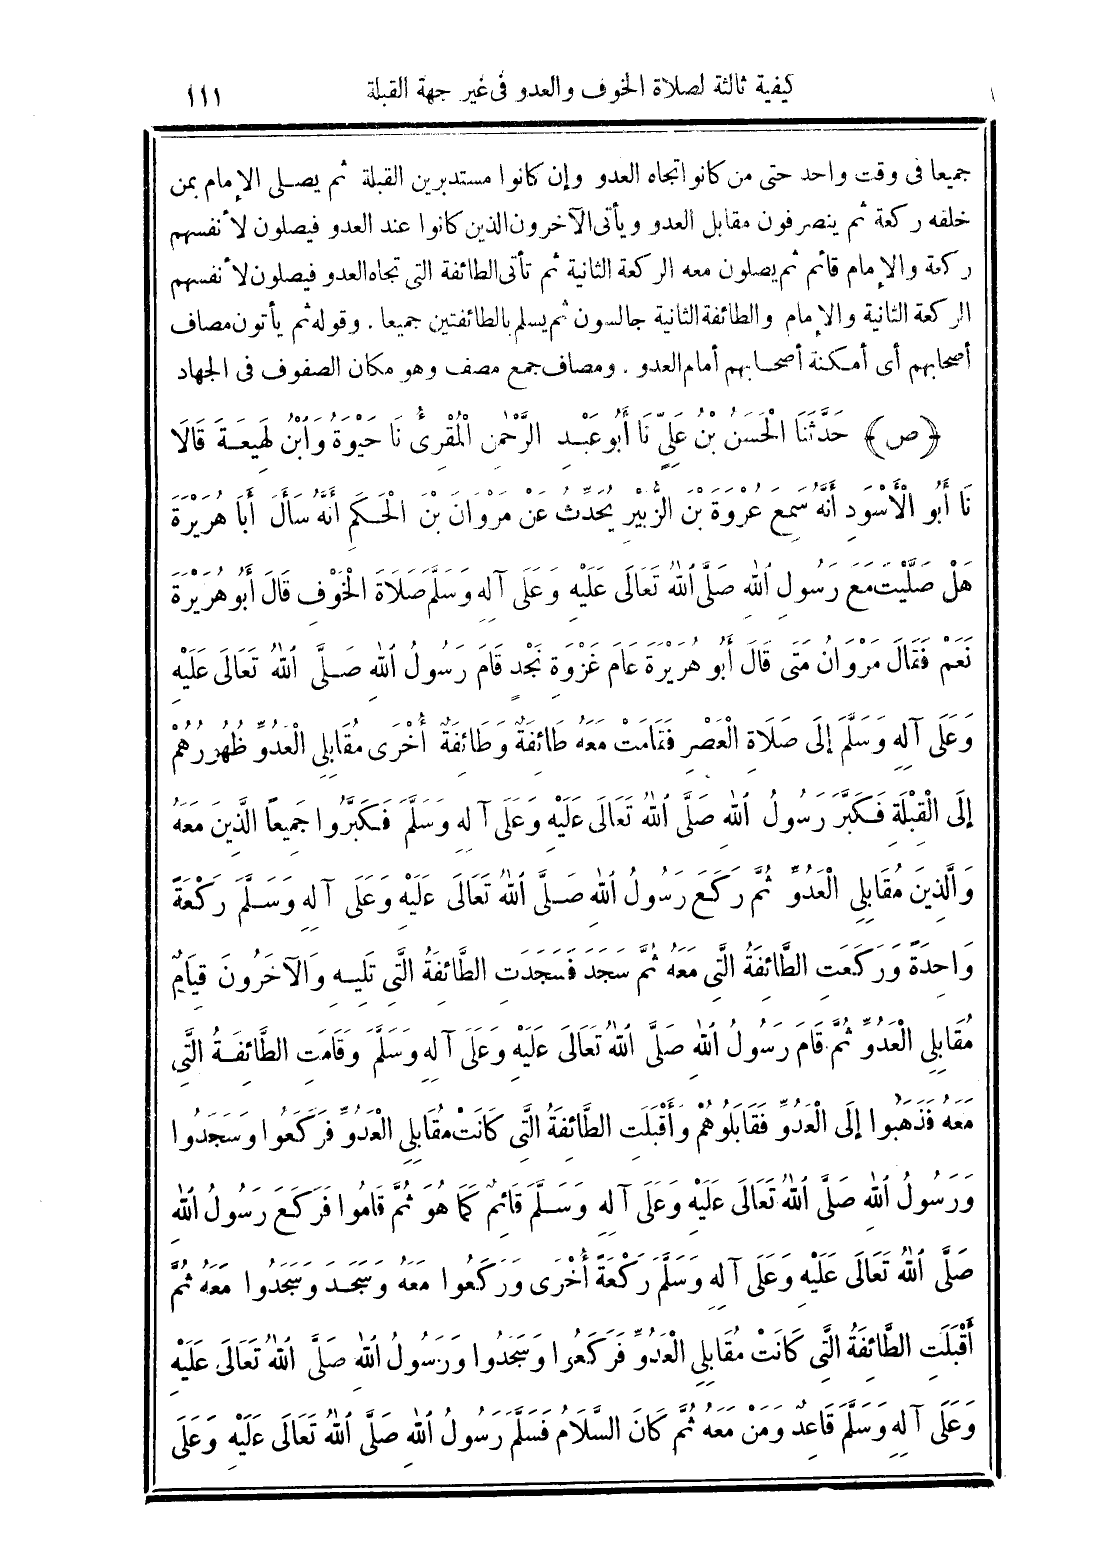 كيفية ثالثة لصلاة الخوف والعدو فى غير جهة القبلة ١١١
جميعا فى وقت واحد حتى من كانوا تجاه العدو وإن كانوا مستدبرين القبلة ثم يصلى الإمام بمن
خلفه ركعة ثم ينصرفون مقابل العدو ويأتى الآخرون الذين كانوا عند العدو فيصلون لأنفسهم
ركعة والإمام قائم ثم يصلون معه الركعة الثانية ثم تأتى الطائفة التى تجاه العدو فيصلون لأنفسهم
الركعة الثانية والإمام والطائفة الثانية جالسون ثم يسلم بالطائفتين جميعا . وقوله ثم يأتون مصاف
أصحابهم أى أمكنة أصحابهم أمام العدو . ومصاف جمع مصف وهو مكان الصفوف فى الجهاد
﴿ص﴾ حَدَّثَنَا الْحَسَنُ بْنُ عَلِيٍّ نَا أَبُو عَبْدِ الرَّحْمٰنِ الْمُقْرِئُ نَا حَيْوَةُ وَابْنُ لَهِيعَةَ قَالَا
نَا أَبُو الْأَسْوَدِ أَنَّهُ سَمِعَ عُرْوَةَ بْنَ الزُّبَيْرِ يُحَدِّثُ عَنْ مَرْوَانَ بْنِ الْحَكَمِ أَنَّهُ سَأَلَ أَبَا هُرَيْرَةَ
هَلْ صَلَّيْتَ مَعَ رَسُولِ اللهِ صَلَّى اللهُ تَعَالَى عَلَيْهِ وَعَلَى آلِهِ وَسَلَّمَ صَلَاةَ الْخَوْفِ قَالَ أَبُو هُرَيْرَةَ
نَعَمْ فَقَالَ مَرْوَانُ مَتَى قَالَ أَبُو هُرَيْرَةَ عَامَ غَزْوَةِ نَجْدٍ قَامَ رَسُولُ اللهِ صَلَّى اللهُ تَعَالَى عَلَيْهِ
وَعَلَى آلِهِ وَسَلَّمَ إِلَى صَلَاةِ الْعَصْرِ فَقَامَتْ مَعَهُ طَائِفَةٌ وَطَائِفَةٌ أُخْرَى مُقَابِلِي الْعَدُوِّ ظُهُورُهُمْ
إِلَى الْقِبْلَةِ فَكَبَّرَ رَسُولُ اللهِ صَلَّى اللهُ تَعَالَى عَلَيْهِ وَعَلَى آلِهِ وَسَلَّمَ فَكَبَّرُوا جَمِيعًا الَّذِينَ مَعَهُ
وَالَّذِينَ مُقَابِلِي الْعَدُوِّ ثُمَّ رَكَعَ رَسُولُ اللهِ صَلَّى اللهُ تَعَالَى عَلَيْهِ وَعَلَى آلِهِ وَسَلَّمَ رَكْعَةً
وَاحِدَةً وَرَكَعَتِ الطَّائِفَةُ الَّتِي مَعَهُ ثُمَّ سَجَدَ فَسَجَدَتِ الطَّائِفَةُ الَّتِي تَلِيهِ وَالْآخَرُونَ قِيَامٌ
مُقَابِلِي الْعَدُوِّ ثُمَّ قَامَ رَسُولُ اللهِ صَلَّى اللهُ تَعَالَى عَلَيْهِ وَعَلَى آلِهِ وَسَلَّمَ وَقَامَتِ الطَّائِفَةُ الَّتِي
مَعَهُ فَذَهَبُوا إِلَى الْعَدُوِّ فَقَابَلُوهُمْ وَأَقْبَلَتِ الطَّائِفَةُ الَّتِي كَانَتْ مُقَابِلِي الْعَدُوِّ فَرَكَعُوا وَسَجَدُوا
وَرَسُولُ اللهِ صَلَّى اللهُ تَعَالَى عَلَيْهِ وَعَلَى آلِهِ وَسَلَّمَ قَائِمٌ كَمَا هُوَ ثُمَّ قَامُوا فَرَكَعَ رَسُولُ اللهِ
صَلَّى اللهُ تَعَالَى عَلَيْهِ وَعَلَى آلِهِ وَسَلَّمَ رَكْعَةً أُخْرَى وَرَكَعُوا مَعَهُ وَسَجَدَ وَسَجَدُوا مَعَهُ ثُمَّ
أَقْبَلَتِ الطَّائِفَةُ الَّتِي كَانَتْ مُقَابِلِي الْعَدُوِّ فَرَكَعُوا وَسَجَدُوا وَرَسُولُ اللهِ صَلَّى اللهُ تَعَالَى عَلَيْهِ
وَعَلَى آلِهِ وَسَلَّمَ قَاعِدٌ وَمَنْ مَعَهُ ثُمَّ كَانَ السَّلَامُ فَسَلَّمَ رَسُولُ اللهِ صَلَّى اللهُ تَعَالَى عَلَيْهِ وَعَلَى